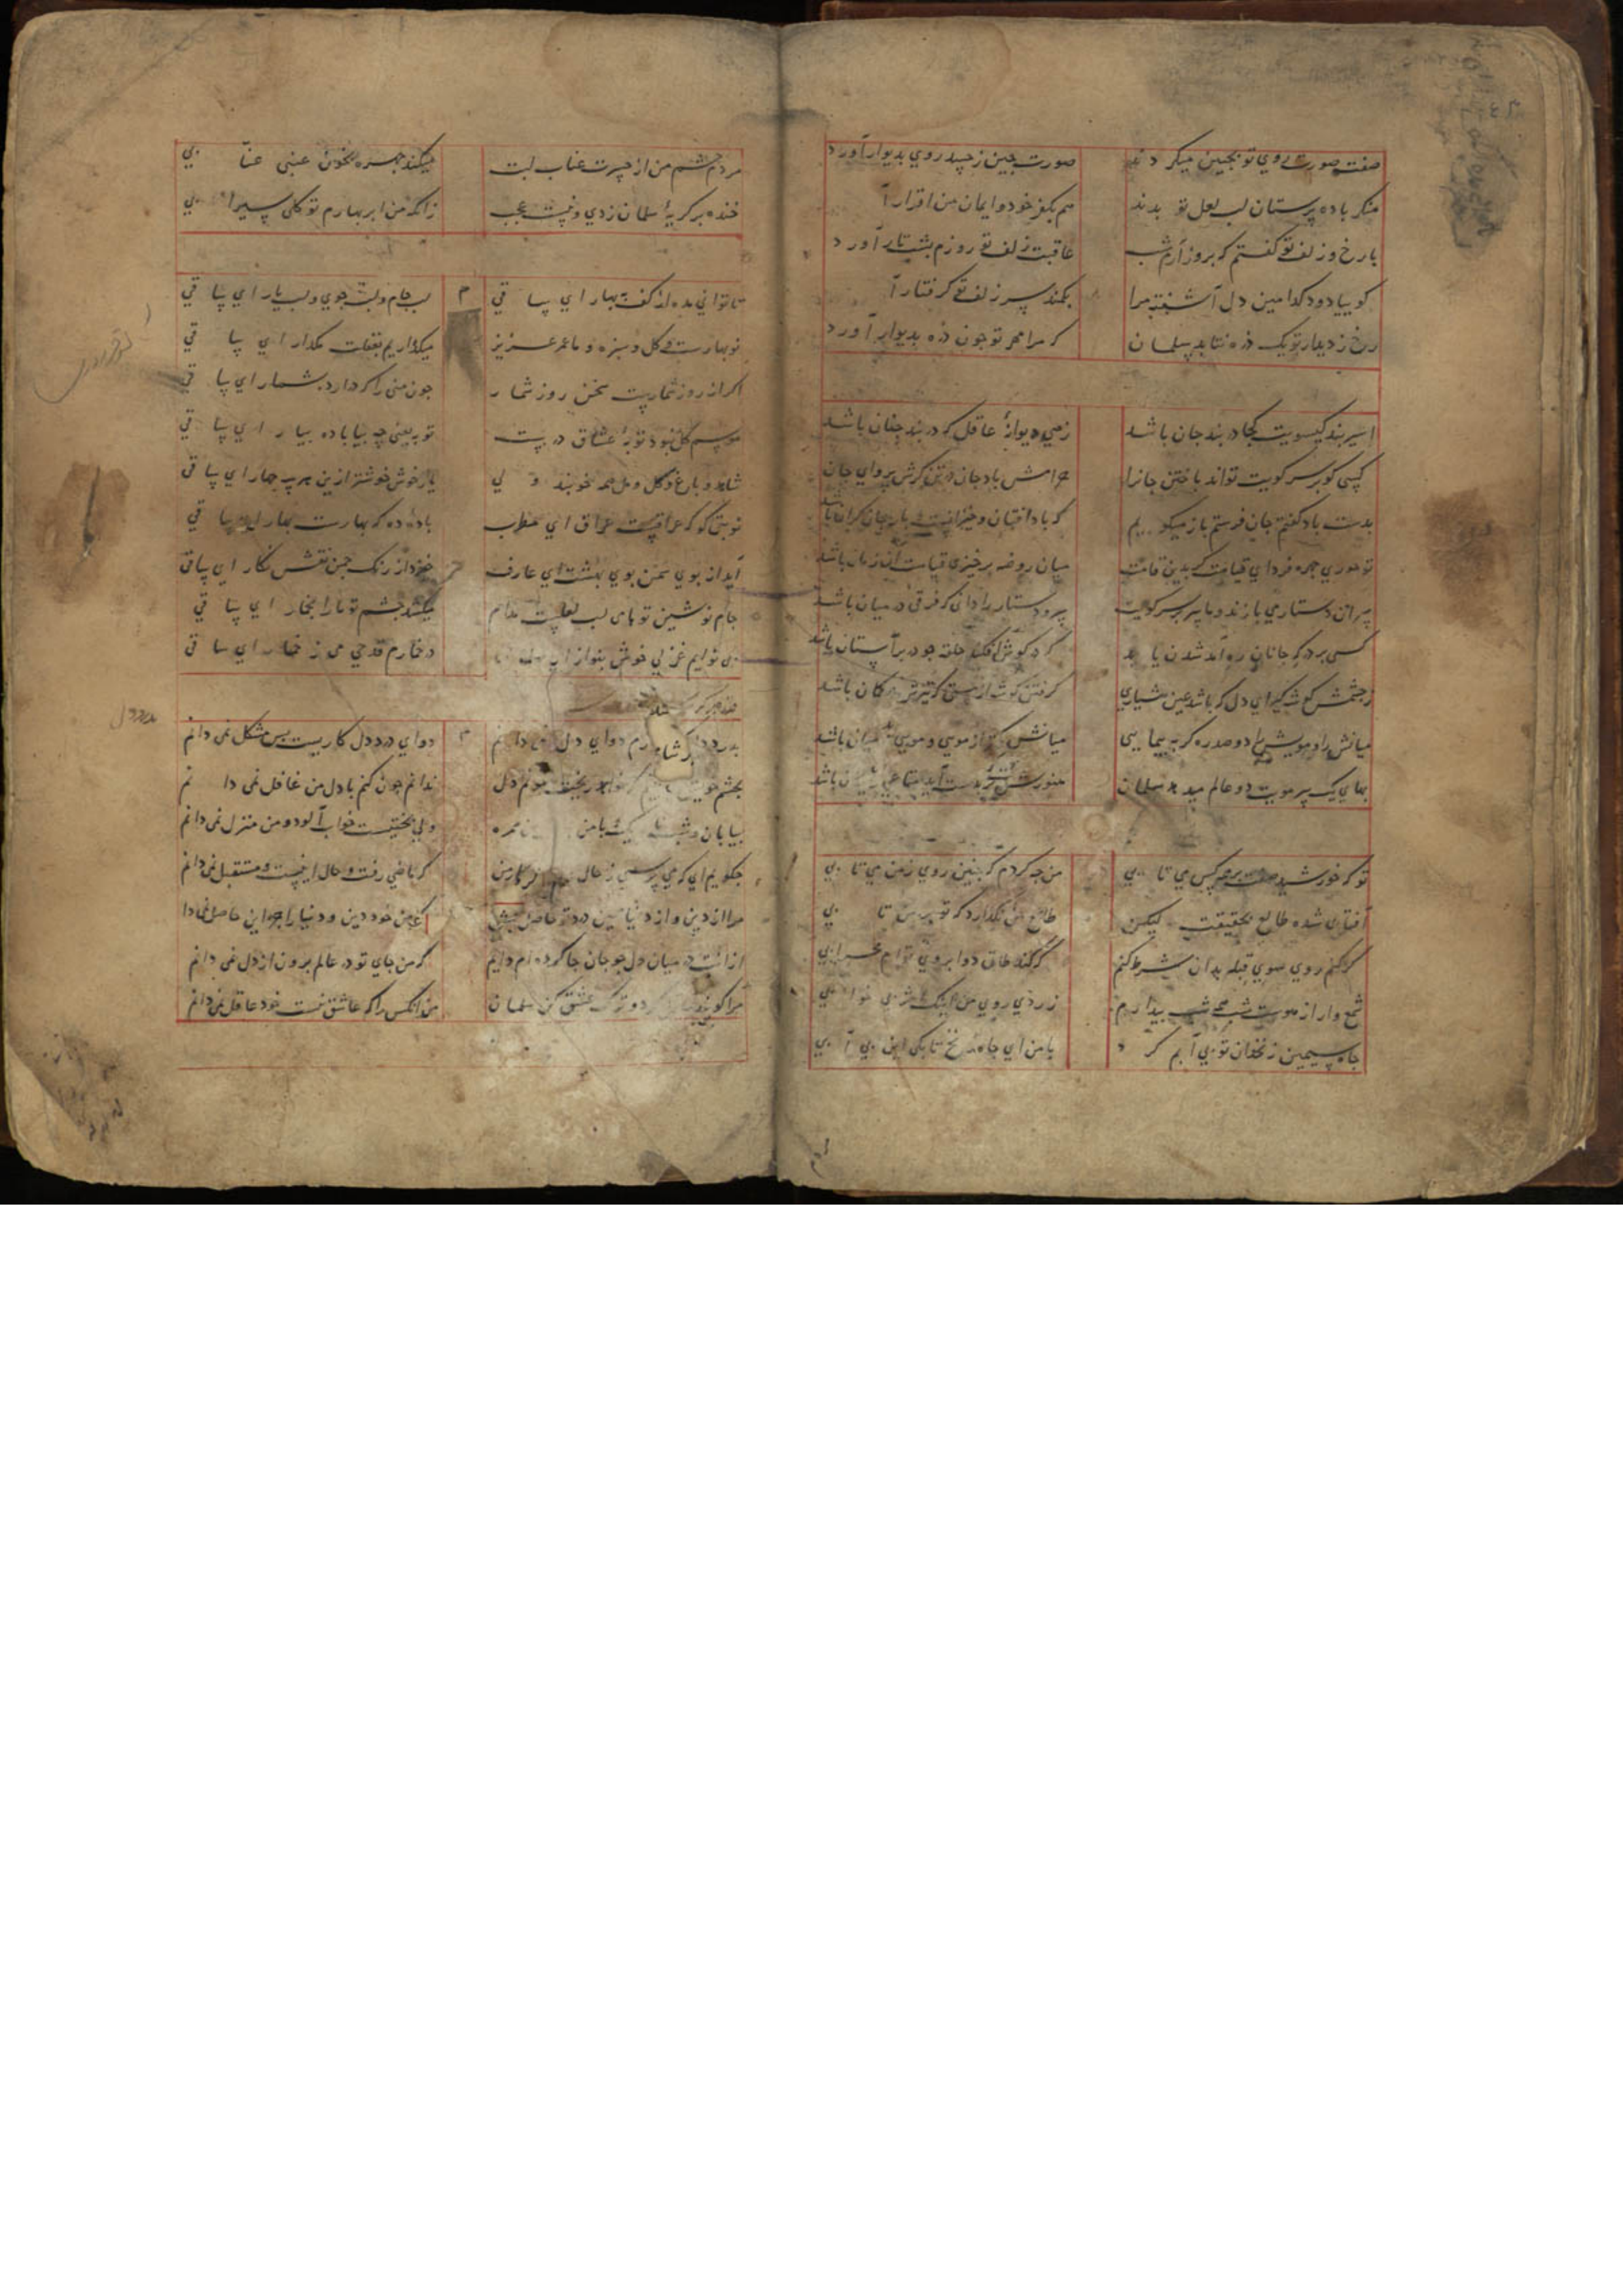 صفت صورت روی تو بچین میکردند
صورت چین ز حسد روی بدیوار آورد
منکر باده پرستان لب لعل تو بدند
هم بکفر خود و ایمان من اقرار آ
با رخ و زلف تو گفتم که بروز آرم شب
عاقبت زلف تو روزم بشب تار آورد
گوییا دود کدامین دل آشفته مرا
بکمند سر زلف تو گرفتار آ
رخ ز دیدار تو یک ذره نتابد سلمان
که مرا مهر تو چون ذره بدیوار آورد
اسیر بند گیسویت کجا در بند جان باشد
زهی دیوانهٔ عاقل که در بند چنان باشد
کسی کو بر سر کویت تواند باختن جانرا
حرامش باد جان در تن گرش پروای جان
بدست باد گفتم جان فرستم باز میگویم
که باد افتان و خیزانست بارجان گران باشد
تو حوری چهره فردای قیامت گر بدین قامت
میان روضه برخیزی قیامت آن زمان باشد
سران دستار می بازند و ما سر بر سر کویت
سر و دستار را دانی که فرقی در میان باشد
کسی بر درگه جانان ره آمد شدن یابد
که در گوش افکند حلقه چو در بر آستان باشد
ز چشمش گوشه گیر ای دل که باشد عین هشیاری
گرفتن گوشه از مستی که تیرش در کمان باشد
میانش را و مویش را دو صد ره گر بپیمایی
میانش کمتر از مویی و مویی تا میان باشد
بهای یک سر مویت دو عالم میدهد سلمان
هنوزش گر بدست آید متاعی رایگان باشد
تو که خورشید صفت بر همه کس می تابی
من چه کردم که چنین روی ز من می تابی
آفتابی شده طالع بحقیقت لیکن
طالع من نگذارد که تو بر من تابی
گر کنم روی سوی قبله بدان شرط کنم
که کند طاق دو ابروی توام محرابی
شمع وار از هوست شب همه شب بیدارم
زردی روی من اینک اثر بی خوابی
چاه سیمین زنخدان تو بی آبم کرد
با من ای چاه زنخ تا بکی این بی آبی
مردم چشم من از حسرت عناب لبت
میکند چهره بخون عنبی عنابی
خنده بر گریهٔ سلمان زدی و نیست عجب
زانکه من ابر بهارم تو گل سیرابی
تا توانی مده از کف بهار ای ساقی
لب جام و لب جوی و لب یار ای ساقی
نوبهارست و گل و سبزه و ما عمر عزیز
میگذاریم بغفلت مگذار ای ساقی
اگر از روز شمارست سخن روز شمار
چون منی را که درآرد بشمار ای ساقی
موسم گل نبود توبهٔ عشاق درست
توبه یعنی چه بیا باده بیار ای ساقی
شاهد و باغ و گل و مل همه خوبند ولی
یار خوش خوشتر ازین هر چهار ای ساقی
نوبتی گو که عراقست عراق ای مطرب
باده ده که بهارست بهار ای ساقی
آید از بوی سمن بوی بهشت ای عارف
خیزد از رنگ چمن نقش نگار ای ساقی
جام نوشین تو با لب لعلست مدام
میکشد چشم تو ما را بخمار ای ساقی
بی نوایم غزلی خوش بنواز ای مطرب
در خمارم قدحی می ز خمار ای ساقی
بدرد دل گرفتارم دوای دل نمی دانم
دوای درد دل کاریست بس مشکل نمی دانم
بچشم خویش می بینم که خواهد ریختن خونم دل
ندانم چون کنم با دل من غافل نمی دانم
بیابان و شب تاریک با من همره
ولی بختیست خواب آلود و من منزل نمی دانم
چگویم ای که می پرسی ز حال
که ماضی رفت و حال اینست و مستقبل نمی دانم
مرا از دین و از دنیا همین درد تو حاصل بس
که من خود دین و دنیا را جز این حاصل نمی دا
ازآنت در میان دل چو جان جا کرده ام دایم
که من جای تو در عالم برون از دل نمی دانم
مرا گویند عاقل گرد و ترک عشق کن سلمان
من آنکس را که عاشق نیست خود عاقل نمی دانم